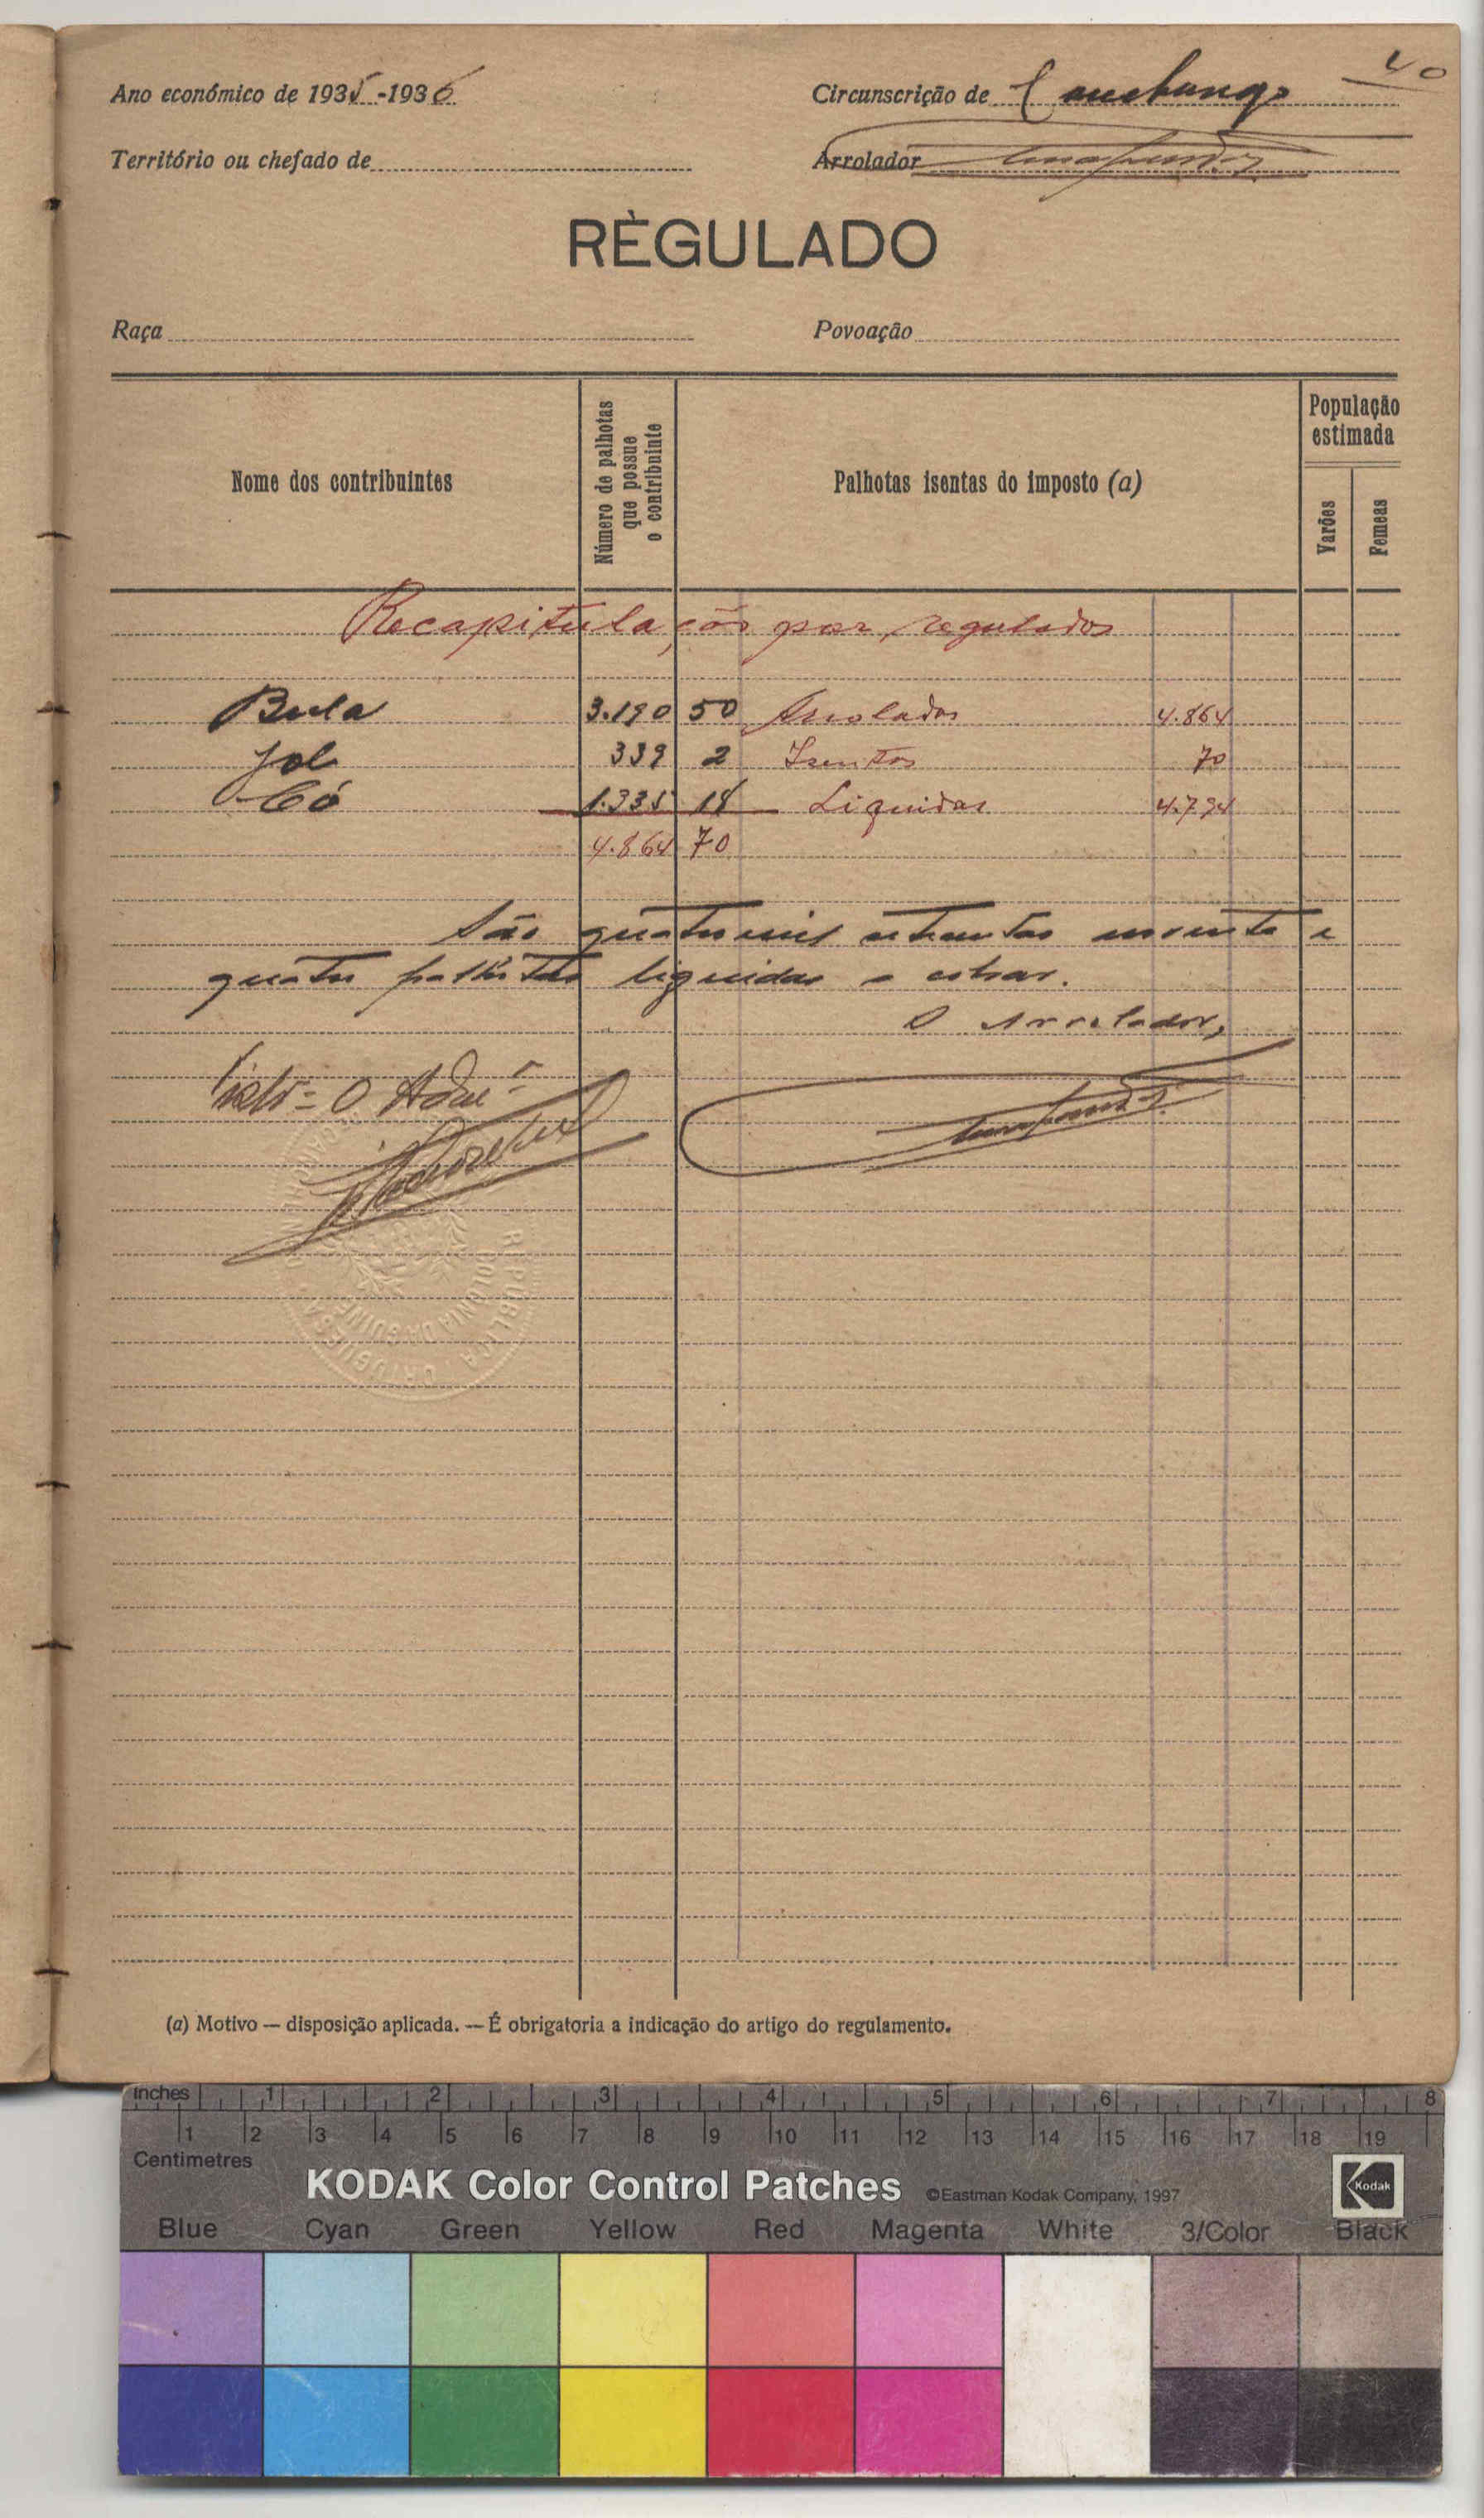 40
Ano económico de 1935-1936
Circunscrição de Canchungo
Território ou chefado de
Arrolador
RÈGULADO
Raça
Povoação
Nome dos contribuintes
Número de palhotas
que possue
o contribuinte
Palhotas isentas do imposto (a)
População
estimada
Varões
Femeas
Recapitulação por regulados
Bula 3.190 50 Arrolados 4.864
Jol 339 2 Isentos 70
Có 1.335 18 Liquidas 4.794
4.864 70
São quatro mil setecentas noventa e
quatro palhotas liquidas a cobrar.
O Arrolador,
Visto = O Admor
REPÚBLICA PORTUGUESA
COLONIA DA GUINÉ
(a) Motivo — disposição aplicada. — É obrigatoria a indicação do artigo do regulamento.
Inches 1 2 3 4 5 6 7 8
1 2 3 4 5 6 7 8 9 10 11 12 13 14 15 16 17 18 19
Centimetres
KODAK Color Control Patches ©Eastman Kodak Company, 1997 Kodak
Blue Cyan Green Yellow Red Magenta White 3/Color Black